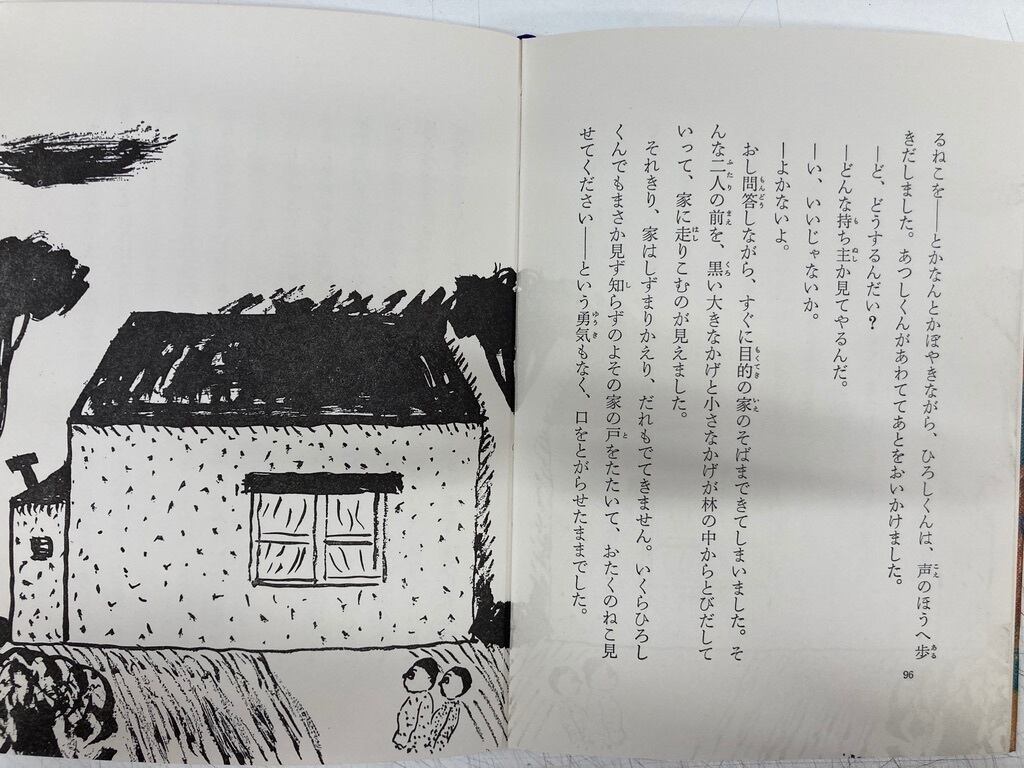 るねこを――とかなんとかぼやきながら、ひろしくんは、声のほうへ歩
きだしました。あつしくんがあわててあとをおいかけました。
―ど、どうするんだい？
―どんな持ち主か見てやるんだ。
―い、いいじゃないか。
―よかないよ。
おし問答しながら、すぐに目的の家のそばまできてしまいました。そ
んな二人の前を、黒い大きなかげと小さなかげが林の中からとびだして
いって、家に走りこむのが見えました。
それきり、家はしずまりかえり、だれもでてきません。いくらひろし
くんでもまさか見ず知らずのよその家の戸をたたいて、おたくのねこ見
せてください――という勇気もなく、口をとがらせたままでした。
96